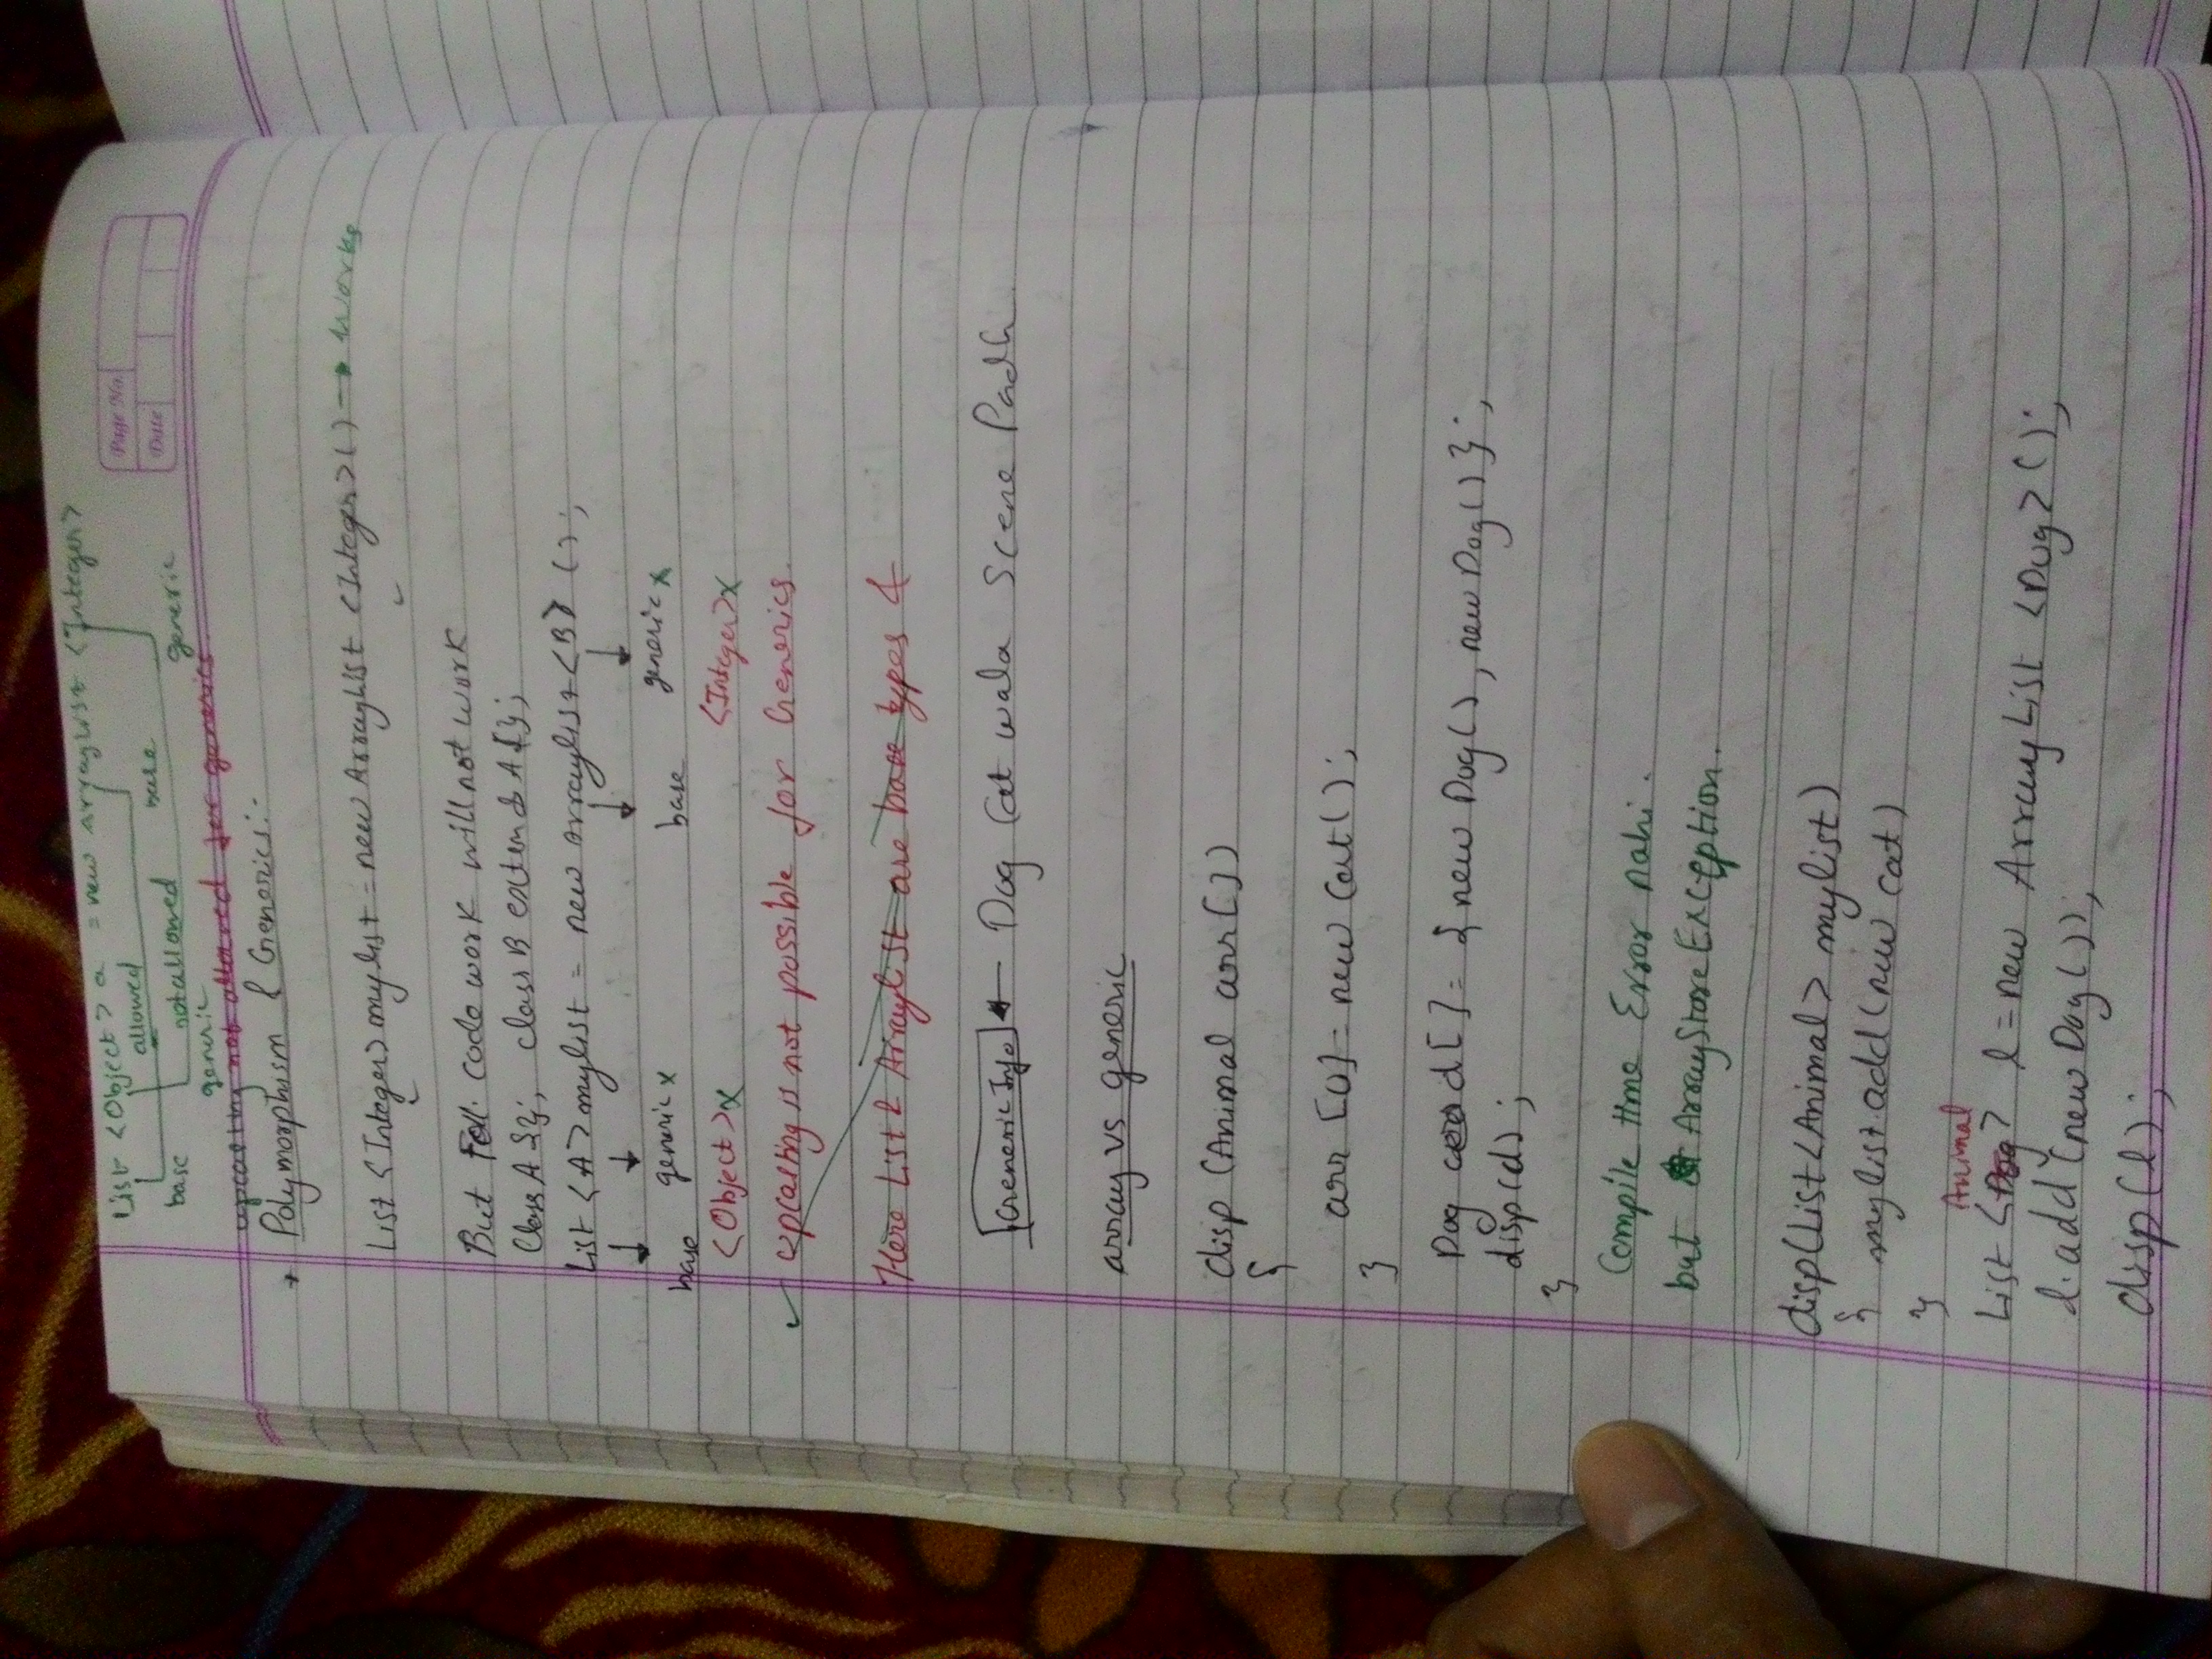 List <Object> a = new arraylist <Integer>
allowed
base
base
not allowed
generic
generic
upcasting not allowed for generics.
Page No.
Date
Polymorphism & Generics:-
List <Integer> mylist = new ArrayList <Integer>() → Works
But Foll. code work will not work
Class A {}; class B extends A {};
List <A> mylist = new arraylist <B> ();
base generic x base generic x
<Object> x <Integer> x
✓ upcasting is not possible for Generics.
Here List & Arraylist are base types &
Generic Info ← Dog Cat wala Scene Padh
array vs generic
disp (Animal arr[])
{
arr [0] = new Cat();
}
Dog d[] = {new Dog(), new Dog()};
disp(d);
}
Compile time Error nahi.
but ArrayStoreException.
disp(List<Animal> mylist)
{ mylist.add(new cat)
}
Animal
List <Dog> l = new ArrayList <Dog>();
l.add(new Dog());
disp(l);